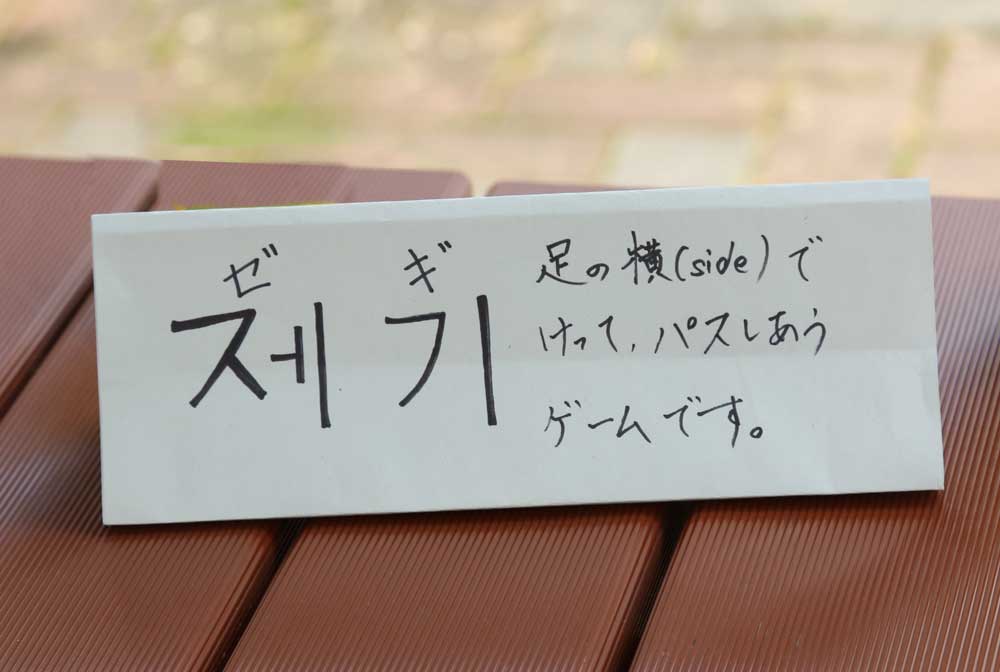 ゼギ
제기
足の横(side)で
けって、パスしあう
ゲームです。